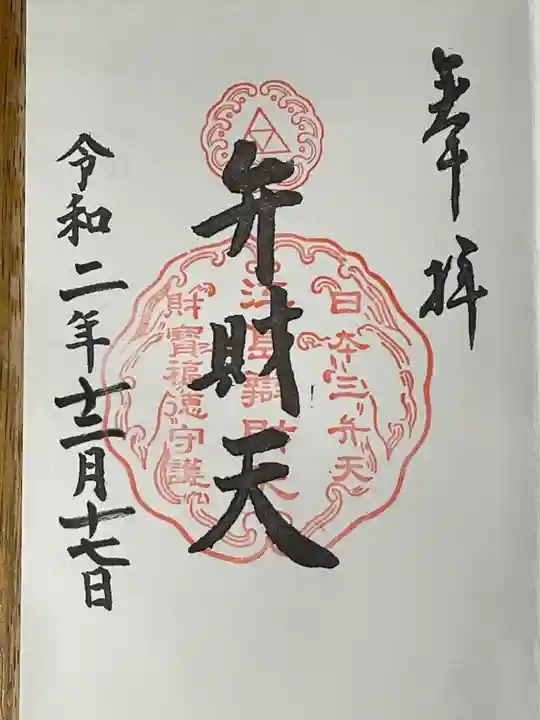 奉拝
日本三弁天
江島辯財天
弁財天
財寳福徳守護
令和二年十二月十七日